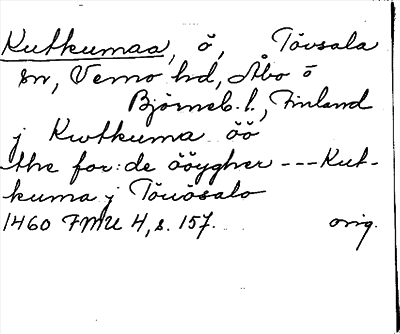 Kutkumaa, ö, Tövsala
sn, Vemo hd, Åbo o
Björneb. l., Finland
j Kwtkuma öö
the for:de ööygher --- Kut-
kuma j Töuösalo
1460 FMU 4, s. 157. orig.